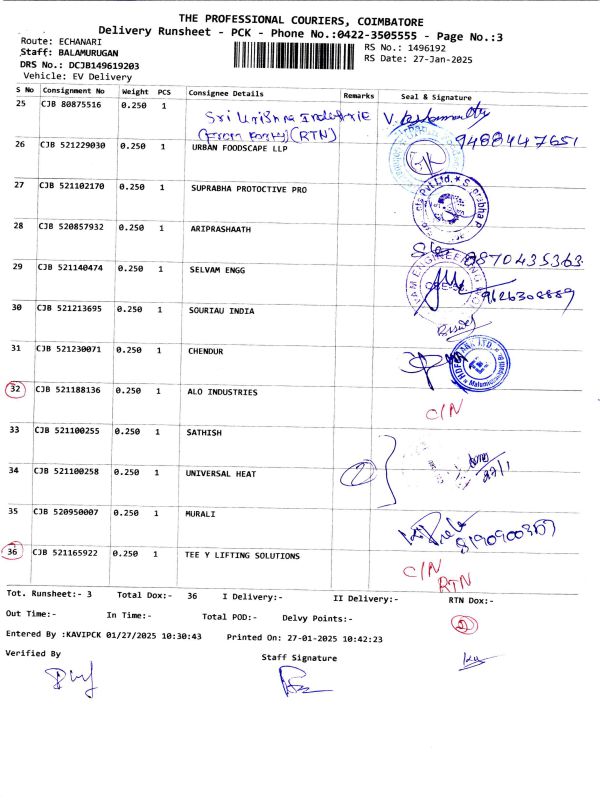 THE PROFESSIONAL COURIERS, COIMBATORE
Delivery Runsheet - PCK - Phone No.:0422-3505555 - Page No.:3
Route: ECHANARI
RS No.: 1496192
Staff: BALAMURUGAN
RS Date: 27-Jan-2025
DRS No.: DCJB149619203
Vehicle: EV Delivery
S No Consignment No Weight PCS Consignee Details Remarks Seal & Signature
25 CJB 80875516 0.250 1 Sri Krishna Industrie
(From Party)(RTN)
9488447651
26 CJB 521229030 0.250 1 URBAN FOODSCAPE LLP
27 CJB 521102170 0.250 1 SUPRABHA PROTOCTIVE PRO
28 CJB 520857932 0.250 1 ARIPRASHAATH
8870435363
29 CJB 521140474 0.250 1 SELVAM ENGG
9626308889
30 CJB 521213695 0.250 1 SOURIAU INDIA
31 CJB 521230071 0.250 1 CHENDUR
32 CJB 521188136 0.250 1 ALO INDUSTRIES C/N
33 CJB 521100255 0.250 1 SATHISH
34 CJB 521100258 0.250 1 UNIVERSAL HEAT 2 27/1
35 CJB 520950007 0.250 1 MURALI
36 CJB 521165922 0.250 1 TEE Y LIFTING SOLUTIONS C/N
RTN
Tot. Runsheet:- 3 Total Dox:- 36 I Delivery:- II Delivery:- RTN Dox:-
Out Time:- In Time:- Total POD:- Delvy Points:- 2
Entered By :KAVIPCK 01/27/2025 10:30:43 Printed On: 27-01-2025 10:42:23
Verified By Staff Signature